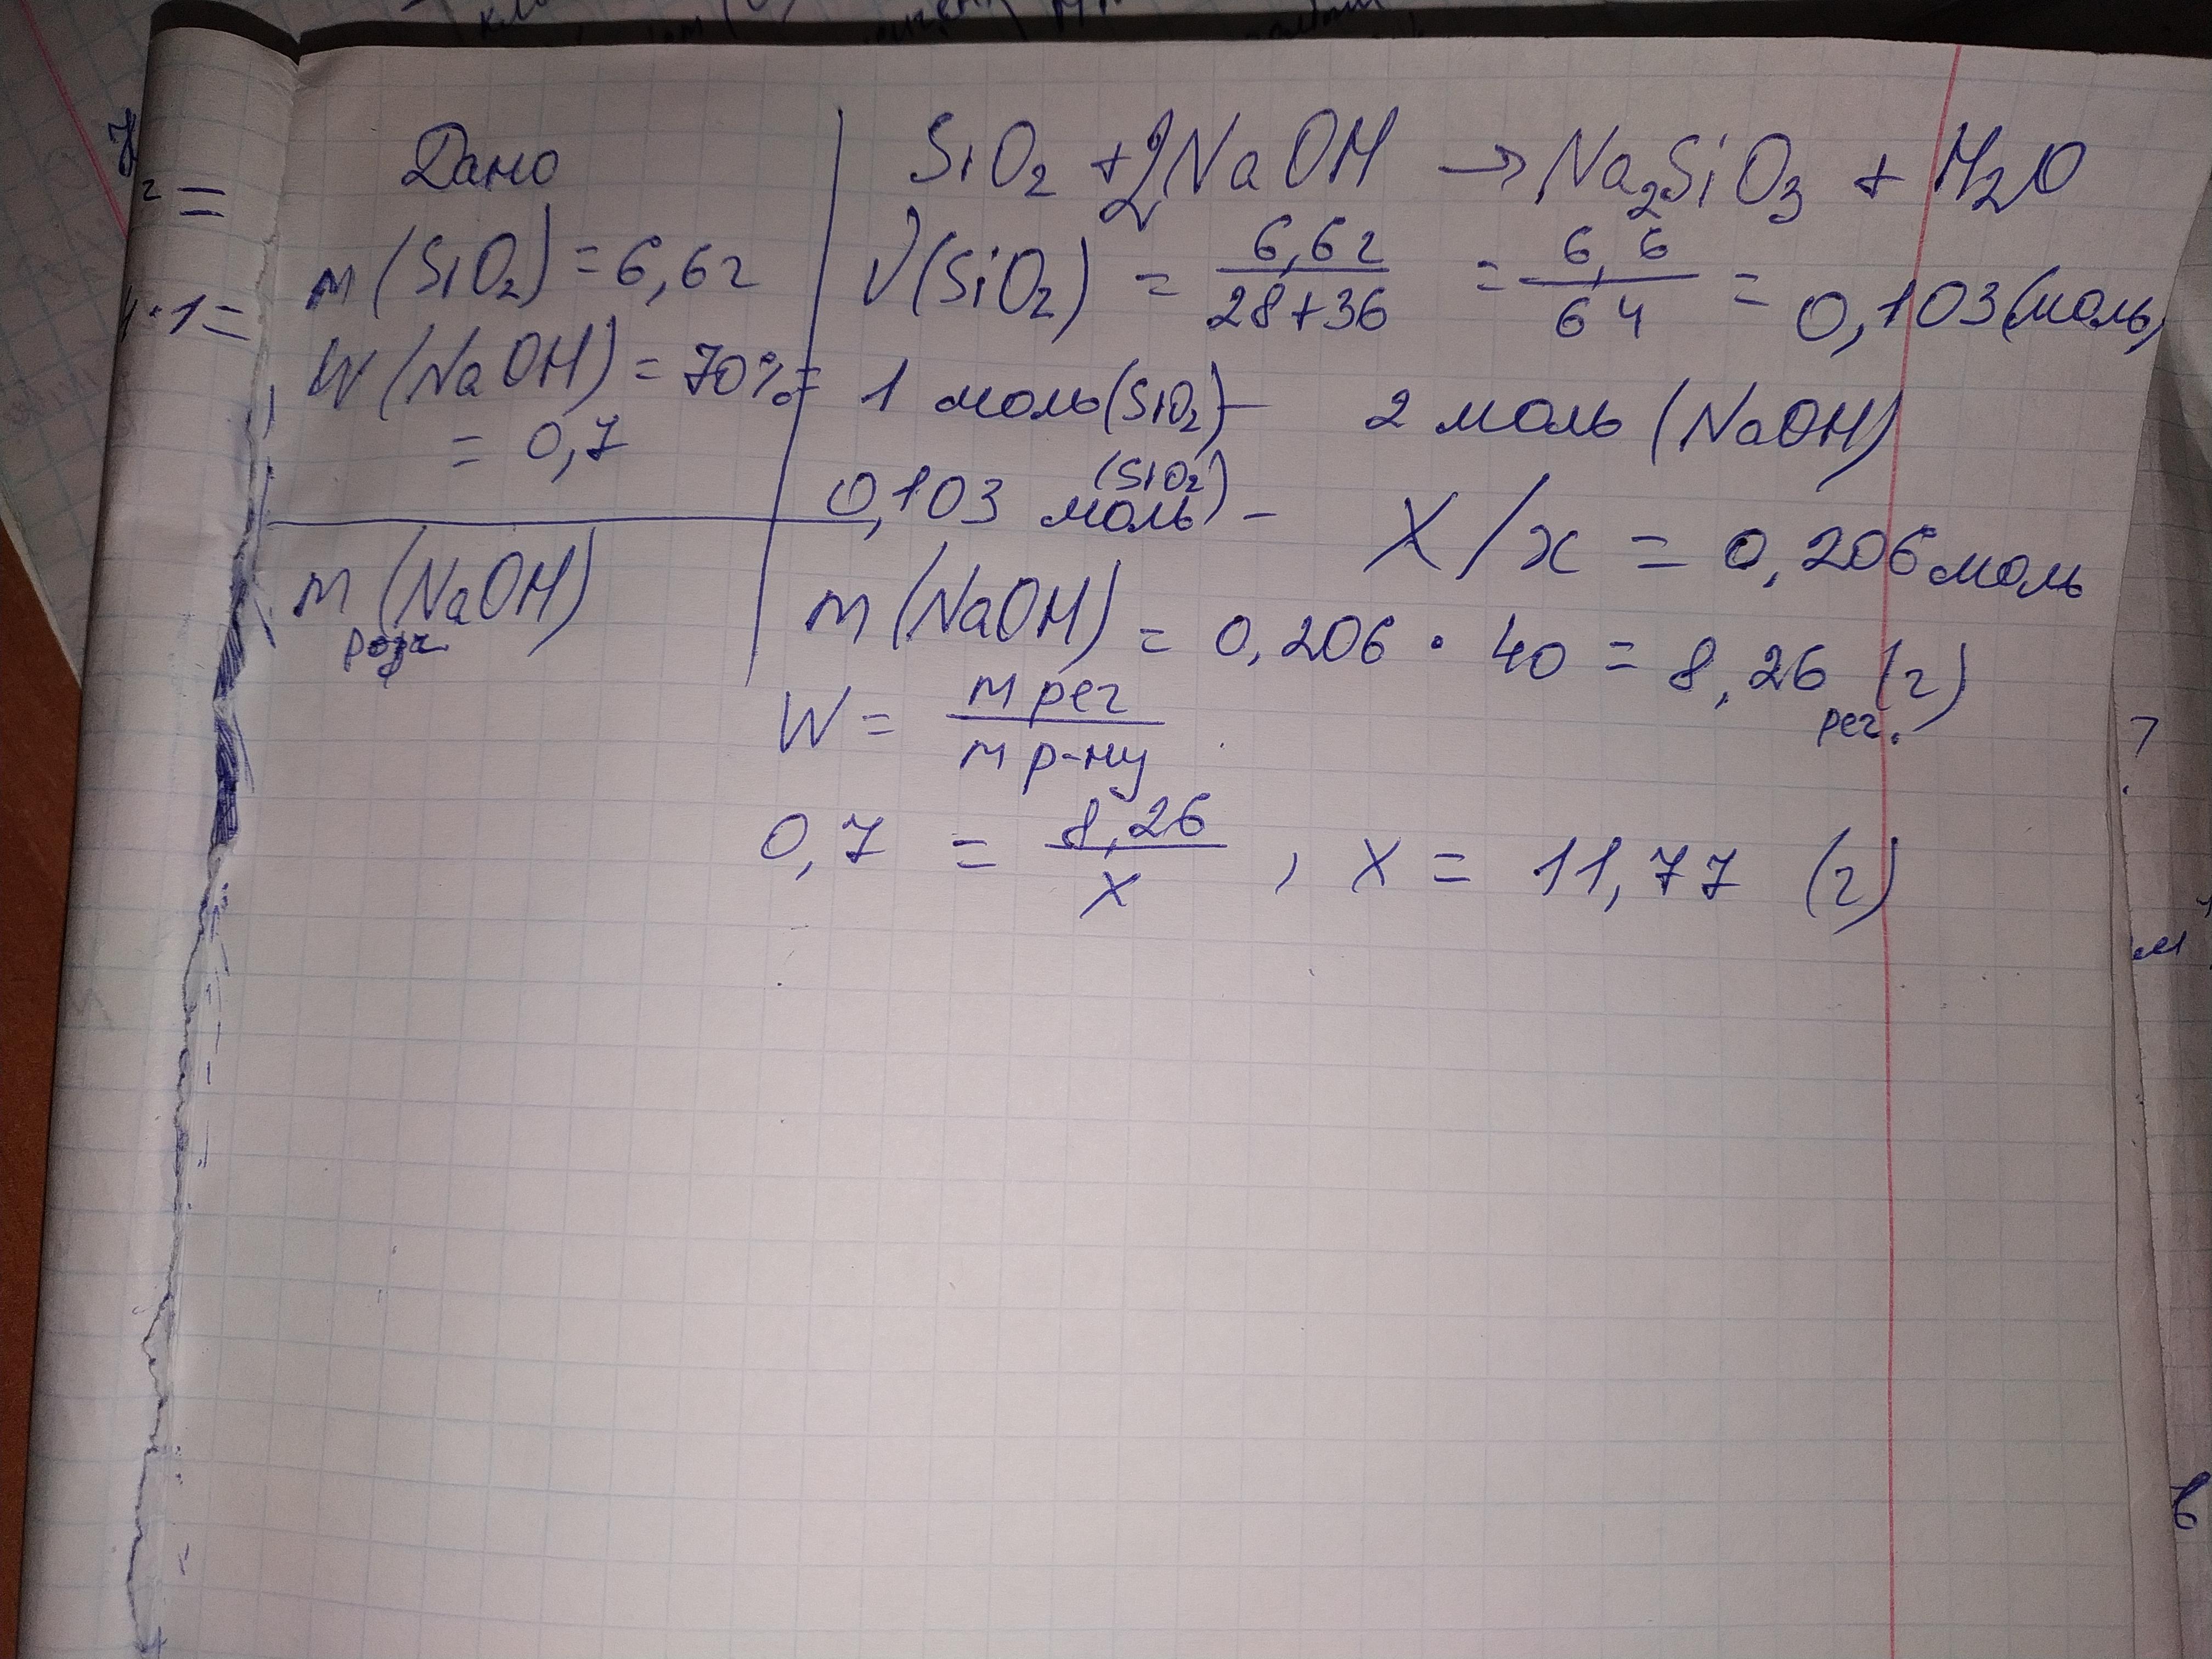 Дано
m (SiO2) = 6,6г
W (NaOH) = 70% =
= 0,7
m (NaOH)
SiO2 + 2NaOH → Na2SiO3 + H2O
ν(SiO2) = 6,6г / 28+36 = 6,6 / 64 = 0,103 (моль)
1 моль (SiO2) – 2 моль (NaOH)
0,103 моль (SiO2) – X / x = 0,206 моль
m (NaOH) = 0,206 · 40 = 8,26 (г)
рег.
W = m рег / m р-ну
0,7 = 8,26 / x , x = 11,77 (г)